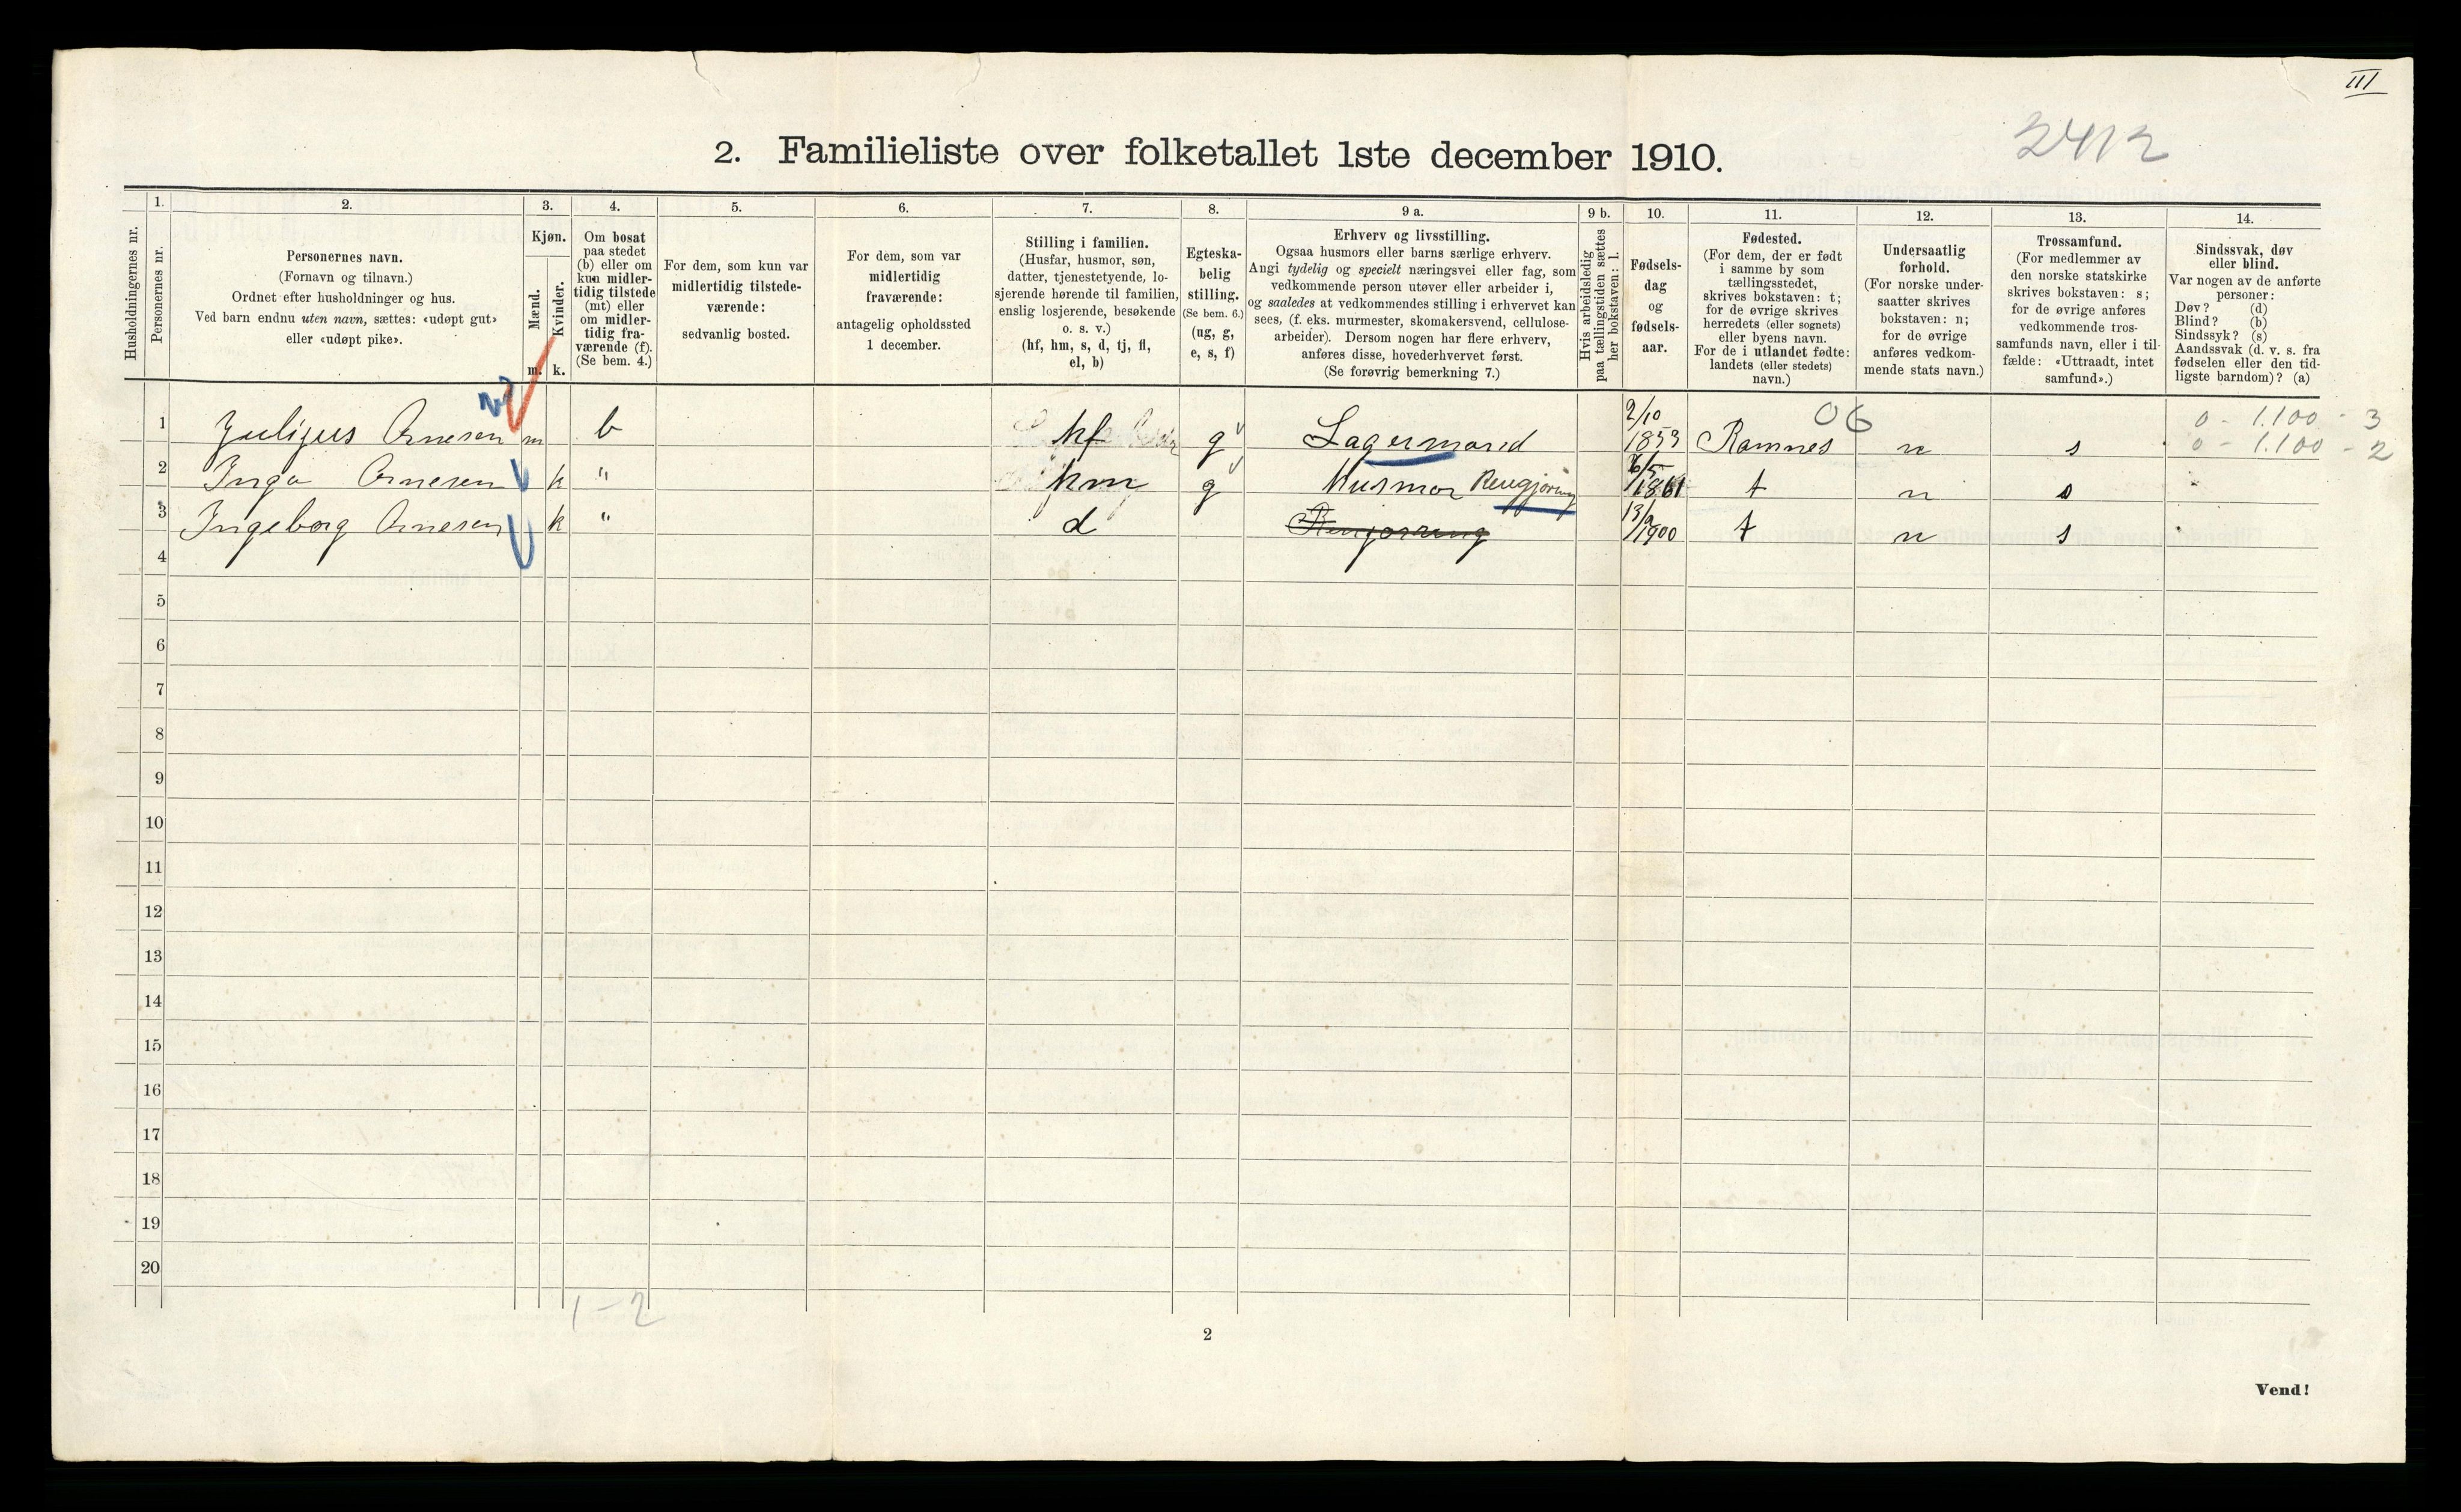 III
2412
2. Familieliste over folketallet 1ste december 1910.
Husholdningernes nr.
1.
Personernes nr.
2.
Personernes navn.
(Fornavn og tilnavn.)
Ordnet efter husholdninger og hus.
Ved barn endnu uten navn, sættes: «udøpt gut»
eller «udøpt pike».
3.
Kjøn.
Mænd.
Kvinder.
m.
k.
4.
Om bosat
paa stedet
(b) eller om
kun midler-
tidig tilstede
(mt) eller
om midler-
tidig fra-
værende (f).
(Se bem. 4.)
5.
For dem, som kun var
midlertidig tilstede-
værende:
sedvanlig bosted.
6.
For dem, som var
midlertidig
fraværende:
antagelig opholdssted
1 december.
7.
Stilling i familien.
(Husfar, husmor, søn,
datter, tjenestetyende, lo-
sjerende hørende til familien,
enslig losjerende, besøkende
o. s. v.)
(hf, hm, s, d, tj, fl,
el, b)
8.
Egteska-
belig
stilling.
(Se bem. 6.)
(ug, g,
e, s, f)
9 a.
Erhverv og livsstilling.
Ogsaa husmors eller barns særlige erhverv.
Angi tydelig og specielt næringsvei eller fag, som
vedkommende person utøver eller arbeider i,
og saaledes at vedkommendes stilling i erhvervet kan
sees, (f. eks. murmester, skomakersvend, cellulose-
arbeider). Dersom nogen har flere erhverv,
anføres disse, hovederhvervet først.
(Se forøvrig bemerkning 7.)
9 b.
Hvis arbeidsledig
paa tællingstiden sættes
her bokstaven: l.
10.
Fødsels-
dag
og
fødsels-
aar.
11.
Fødested.
(For dem, der er født
i samme by som
tællingsstedet,
skrives bokstaven: t;
for de øvrige skrives
herredets (eller sognets)
eller byens navn.
For de i utlandet fødte:
landets (eller stedets)
navn.)
12.
Undersaatlig
forhold.
(For norske under-
saatter skrives
bokstaven: n;
for de øvrige
anføres vedkom-
mende stats navn.)
13.
Trossamfund.
(For medlemmer av
den norske statskirke
skrives bokstaven: s;
for de øvrige anføres
vedkommende tros-
samfunds navn, eller i til-
fælde: «Uttraadt, intet
samfund».)
14.
Sindssvak, døv
eller blind.
Var nogen av de anførte
personer:
Døv? (d)
Blind? (b)
Sindssyk? (s)
Aandssvak (d. v. s. fra
fødselen eller den tid-
ligste barndom)? (a)
1 Julijus Arnesen m b hf g Lagermand 2/10 1853 Ramnes 06 n s 0 - 1.100 - 3
0 - 1.100 - 2
2 Inga Arnesen k " hm g Husmor Rengjøring 1861 t n s
3 Ingeborg Arnesen k " d Rengøreng 13/9 1900 t n s
4
5
6
7
8
9
10
11
12
13
14
15
16
17
18
19
20
1 - 2
2
Vend!